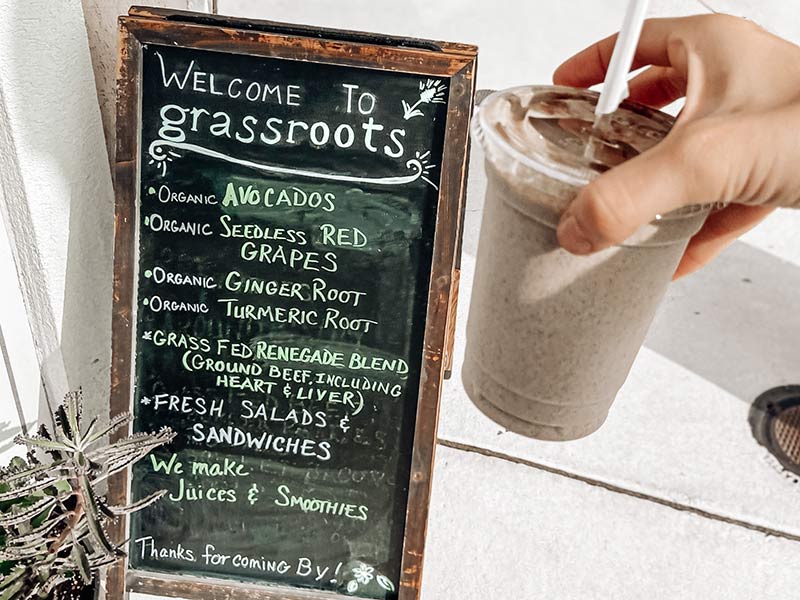 WELCOME TO
grassroots
• ORGANIC AVOCADOS
• ORGANIC SEEDLESS RED
GRAPES
• ORGANIC GINGER ROOT
• ORGANIC TURMERIC ROOT
* GRASS FED RENEGADE BLEND
(GROUND BEEF, INCLUDING
HEART & LIVER)
* FRESH SALADS &
SANDWICHES
We make
Juices & SMOOTHIES
Thanks for coming By!